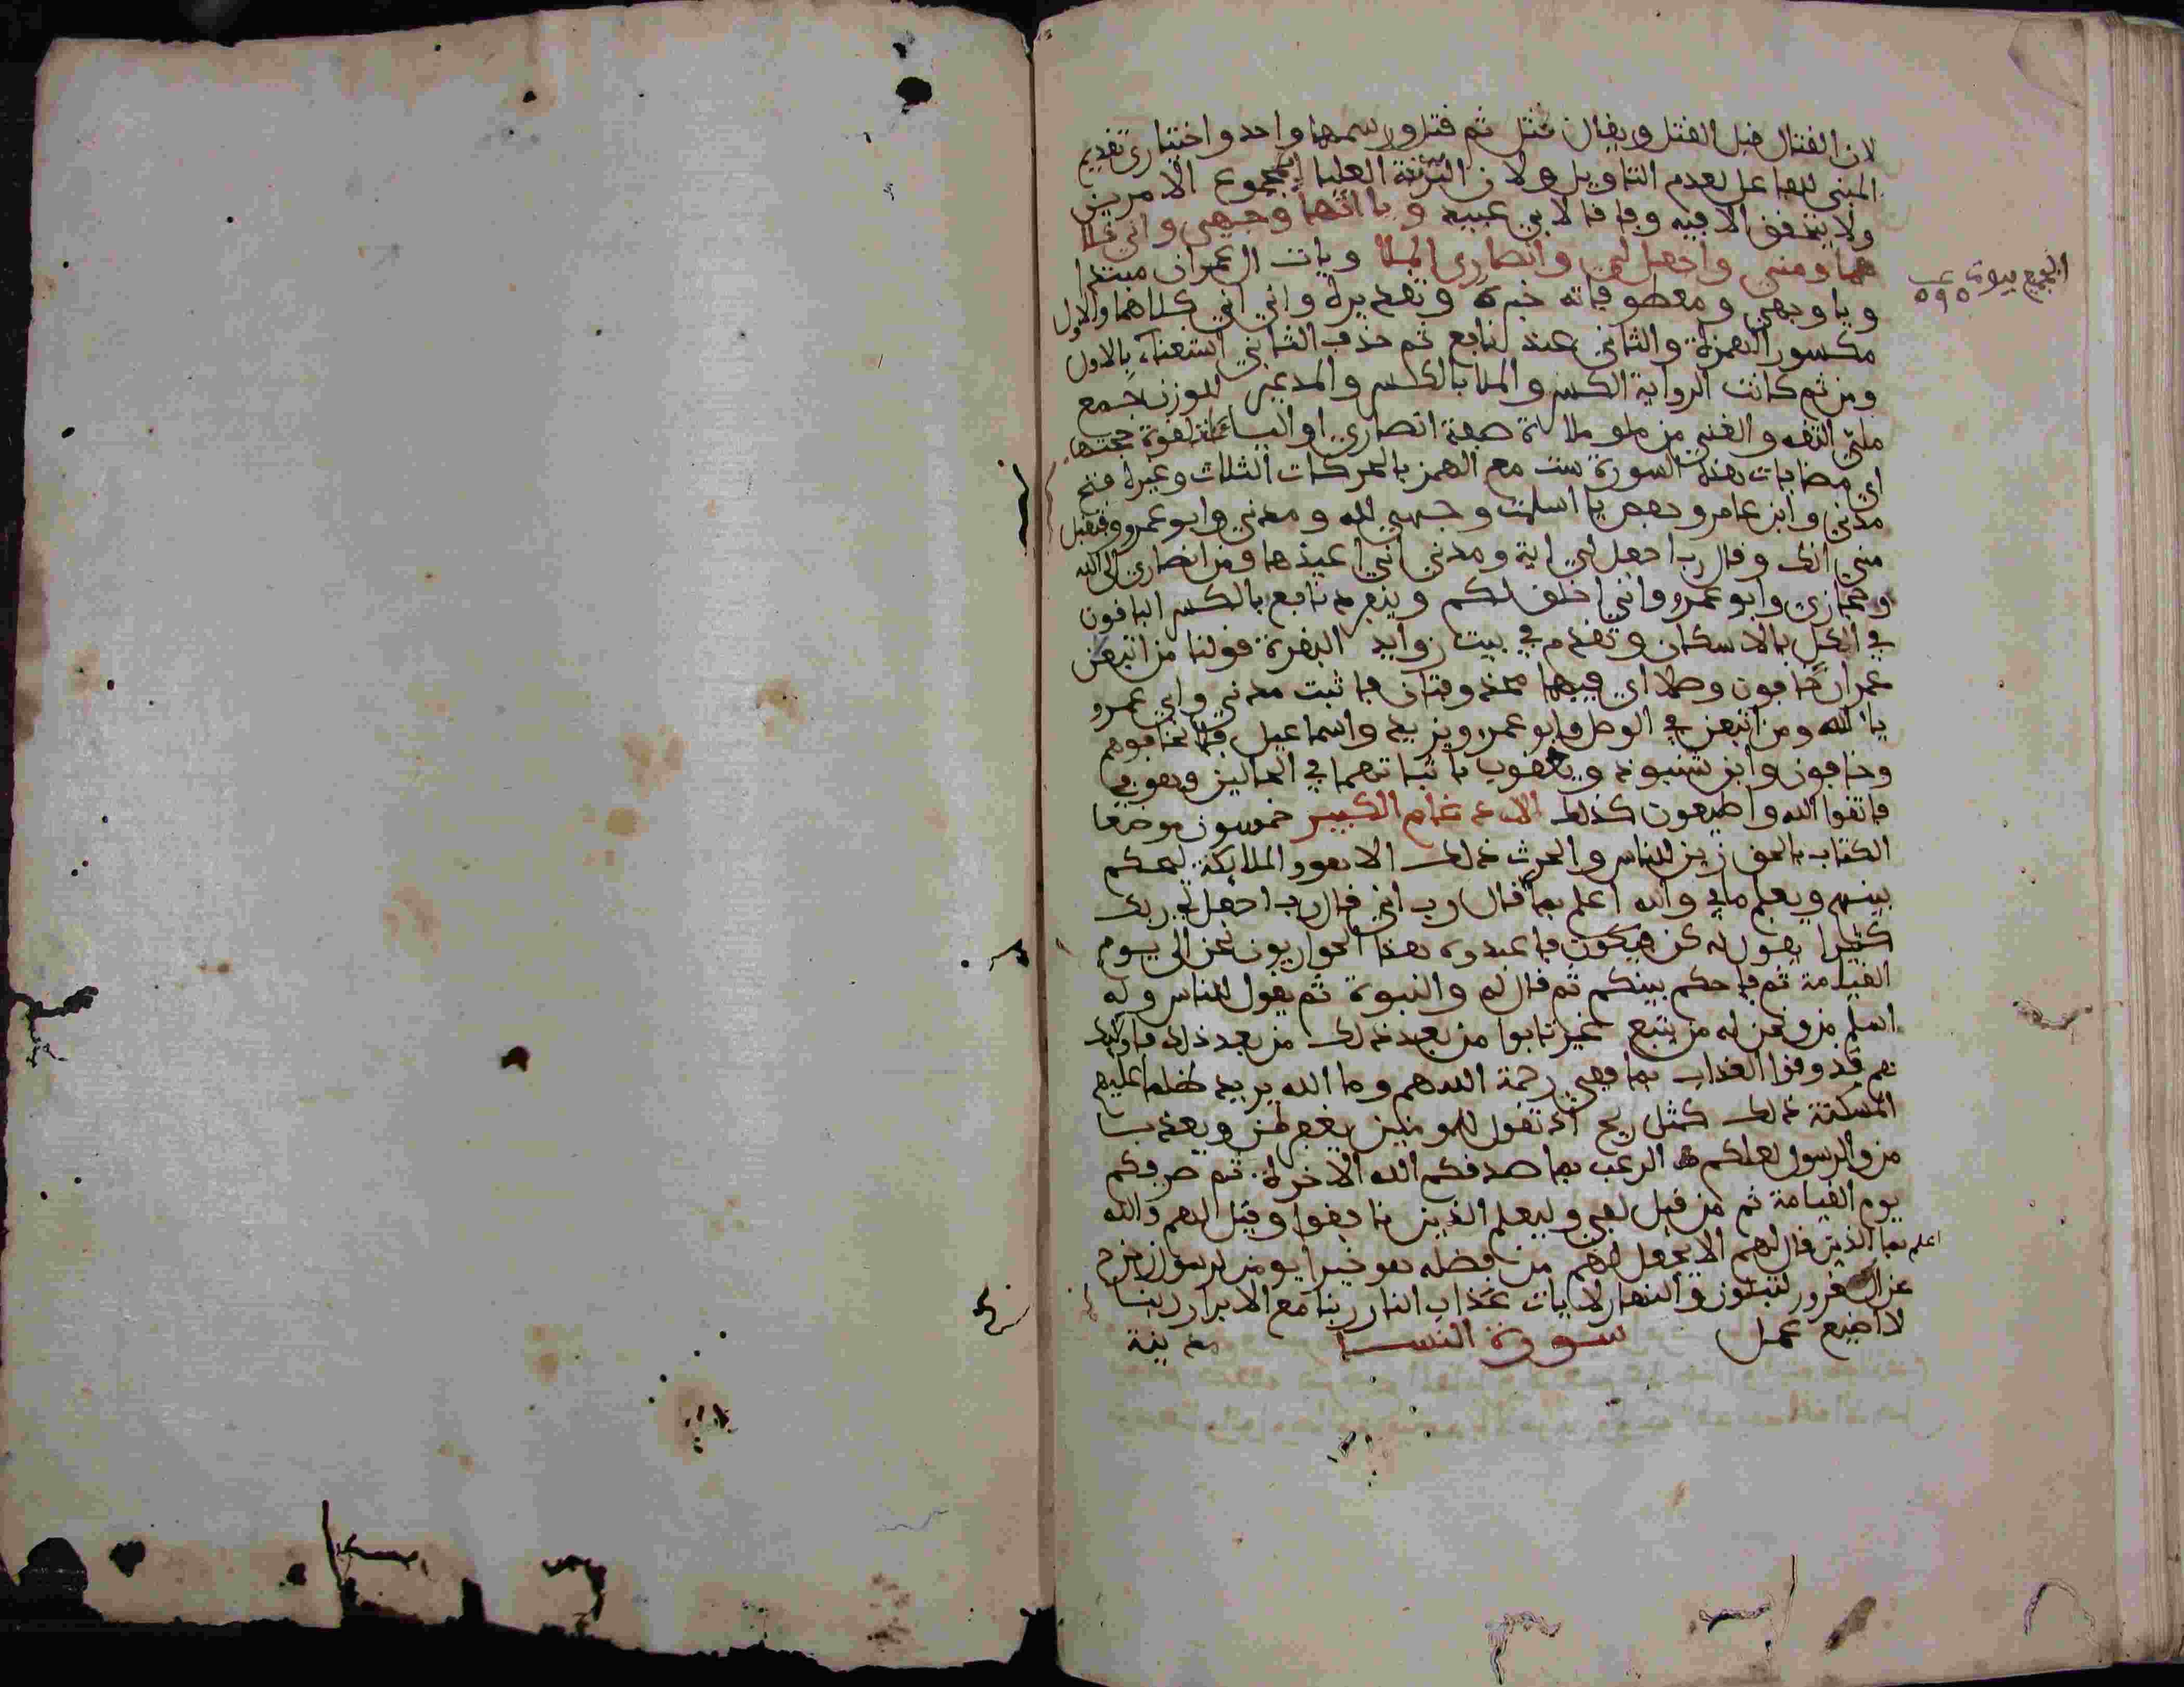 لان القتال قبل القتل ويقال قتل ثم قتل ورسمها واحد واختياري تقديم
المبني للفاعل لعدم التاويل ولان الرتبة العليا لمجموع الامرين
ولا يتحقق الا فيه وفاقا لابي عبيد ويا اتها وجهي واني كلا
هما ومني واجعل لي وانصاري الملا ويات ال عمران مبتدا
ويا وجهي ومعطوفاته خبره وتقديره واني اني كلاهما والاول
مكسور الهمزة والثاني عند نافع ثم حذف الثاني استغناء بالاول
ومن ثم كانت الرواية الكسر والملا بالكسر والمد للوزن جمع
ملئ الثقة والغني من ملو ملاءة صفة انصاري او اليا لقوة حجتها
اي مضافات هذه السورة ست مع الهمز بالحركات الثلاث وغيره فتح
مدني وابن عامر وحفص يا اسلمت وجهي لله ومدني وابو عمرو فتقبل
مني انك وقال رب اجعل لي اية ومدني اني اعيذها ومن انصاري الى الله
وحجازي وابو عمرو واني اخلق لكم وينفرد نافع بالكسر الباقون
في الكل بالاسكان وتقدم في بيت زوايد البقرة قولنا من اتبعن
عمران خافون وصلا اي فيها محذوفتان فاثبت مدني وابي عمرو
يا لله ومن اتبعن في الوصل وابو عمرو ويزيد واسماعيل فلا تخافوهم
وخافون وابن شنبوذ ويعقوب باثباتهما في الحالين وهو في
فاتقوا الله واطيعون كذلك الادغام الكبير خمسون موضعا
الكتاب بالحق زين للناس والحرث ذلك الا هو والملايكة ليحكم
بينهم ويعلم ما في والله اعلم بما قال رب اني قال رب اجعل لي ربك
كثيرا يقول له كن فيكون فاعبدوه هذا الحواريون نحن الى يوم
القيامة ثم فاحكم بينكم ثم قال له والنبوة ثم يقول للناس وله
اسلم من ونحن له من يبتغ غير تابوا من بعد ذلك من بعد ذلك فاوليك
هم فذوقوا العذاب بما ففي رحمة الله هم وما الله يريد ظلما عليهم
المسكنة ذلك كمثل ريح اذ تقول للمومنين يغفر لمن ويعذب
من والرسول لعلكم الرعب بما صدقكم الله الاخرة ثم صرفكم
يوم القيامة ثم من قبل لفي وليعلم الذين نافقوا وقيل لهم والله
اعلم بما الذين قال لهم الا يجعل لهم من فضله هو خيرا يومن لرسول زحزح
عن الغرور لتبلون والنهار لايات عذاب النار ربنا مع الابرار ربنا
لا اضيع عمل سورة النسا مدنية